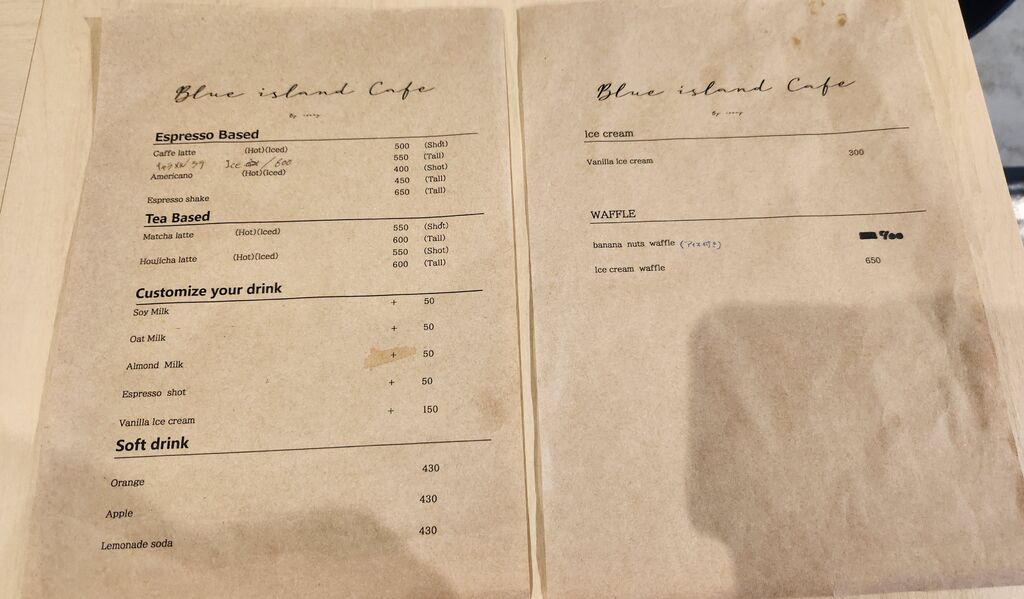 Blue island Cafe
Espresso Based
Caffe latte (Hot)(Iced) 500 (Shot)
550 (Tall)
Ice / 600
Americano (Hot)(Iced) 400 (Shot)
450 (Tall)
Espresso shake 650 (Tall)
Tea Based
Matcha latte (Hot)(Iced) 550 (Shot)
600 (Tall)
Houjicha latte (Hot)(Iced) 550 (Shot)
600 (Tall)
Customize your drink
Soy Milk + 50
Oat Milk + 50
Almond Milk + 50
Espresso shot + 50
Vanilla ice cream + 150
Soft drink
Orange 430
Apple 430
Lemonade soda 430
Blue island Cafe
Ice cream
Vanilla ice cream 300
WAFFLE
banana nuts waffle 900
Ice cream waffle 650